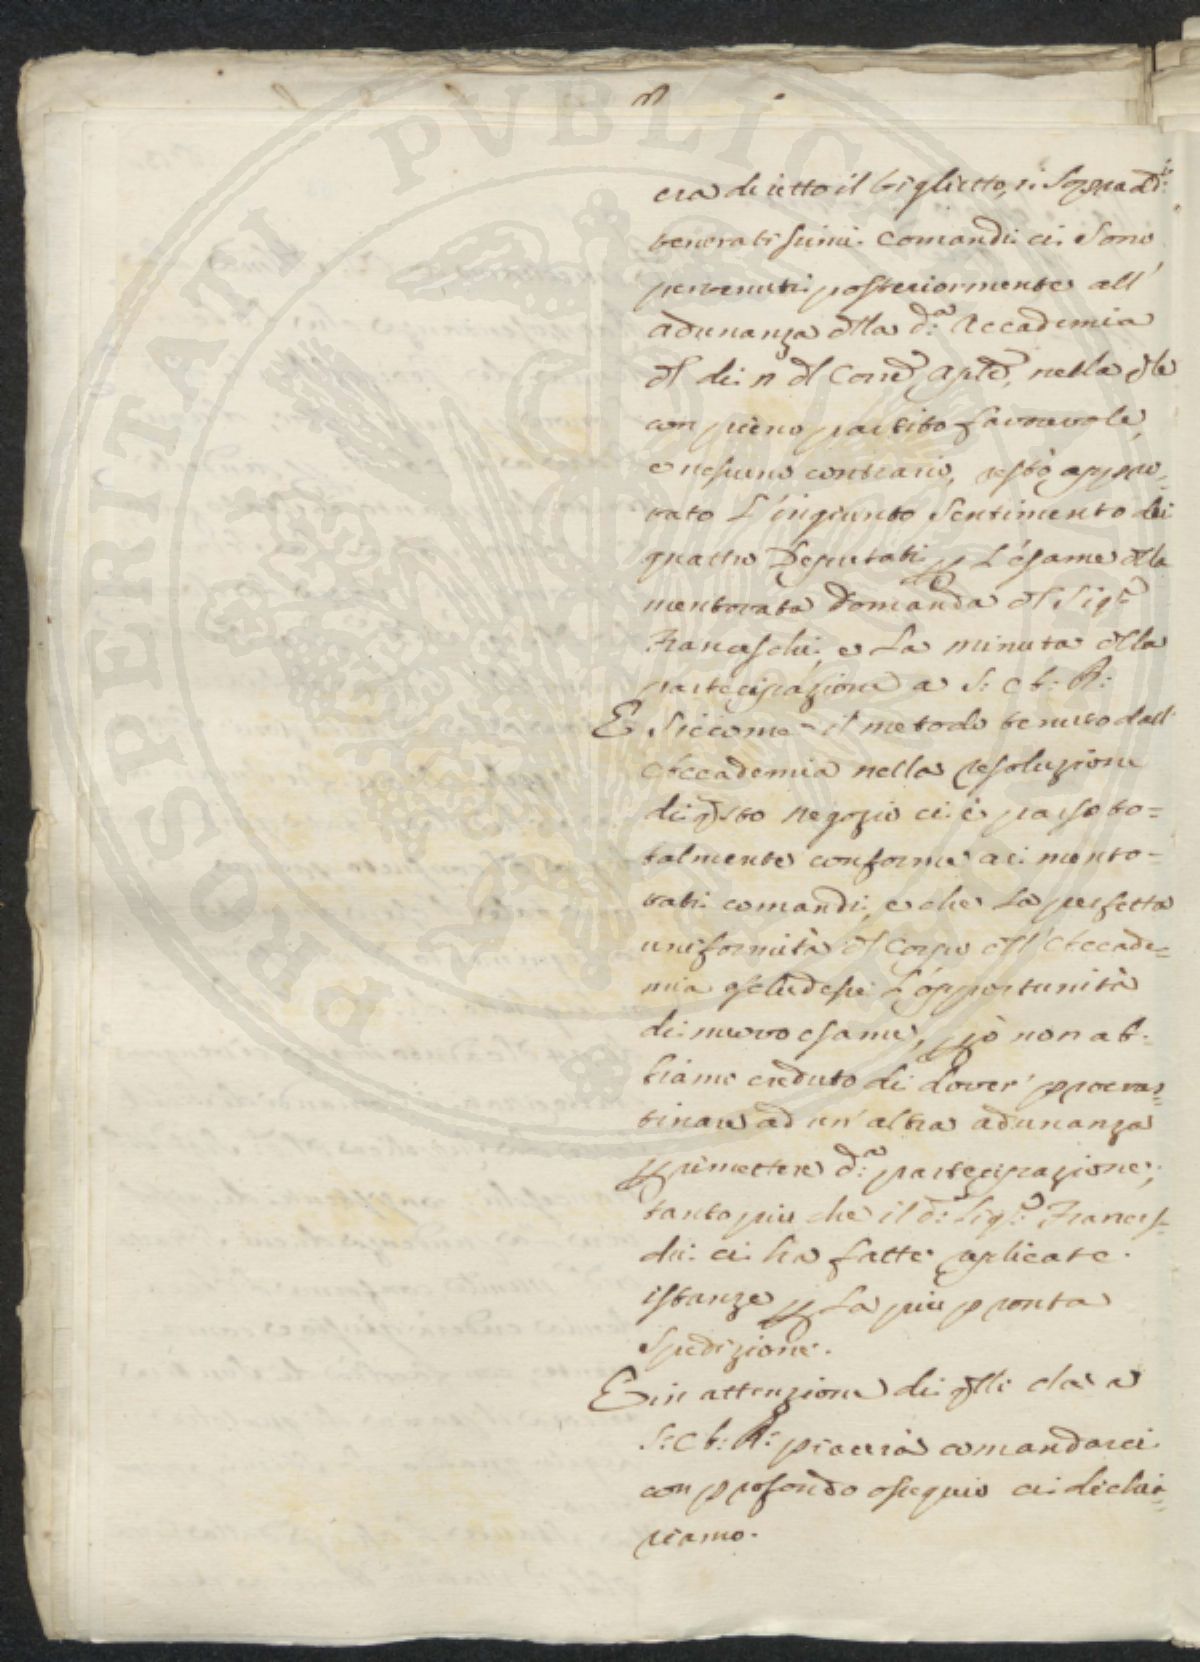 era diretto il biglietto, i Sopradd:i
veneratissimi comandi ci Sono
pervenuti posteriormente all'
adunanza dlla d:a Accademia
dl dì n dl Corr:e Aple, nella qle
con pieno partito favorevole,
e nessuno contrario, restò appro=
vato L'ingiunto Sentimento dei
quattro Deputati p L'esame dlla
mentovata Domanda dl Sig:r
Franceschi, e La minuta dlla
partecipazione a S: A: R:
E Siccome il metodo tenuto dall'
Accademia nella resoluzione
di qsto negozio ci è parso to=
talmente conforme ai mento=
vati comandi, e che La perfetta
uniformità dl Corpo dll'Accade=
mia escludesse L'opportunità
di nuovo esame, pciò non ab=
biamo creduto di dover' procras=
tinare ad un'altra adunanza
p rimettere d:a partecipazione;
tanto più che il d:o Sig:r Frances=
chi ci ha fatte replicate
istanze p La più pronta
Spedizione.
E in attenzione di qlli che a
S: A: R: piacerà comandarci
con profondo ossequio ci dichia=
riamo.
PROSPERITATI PUBLICAE